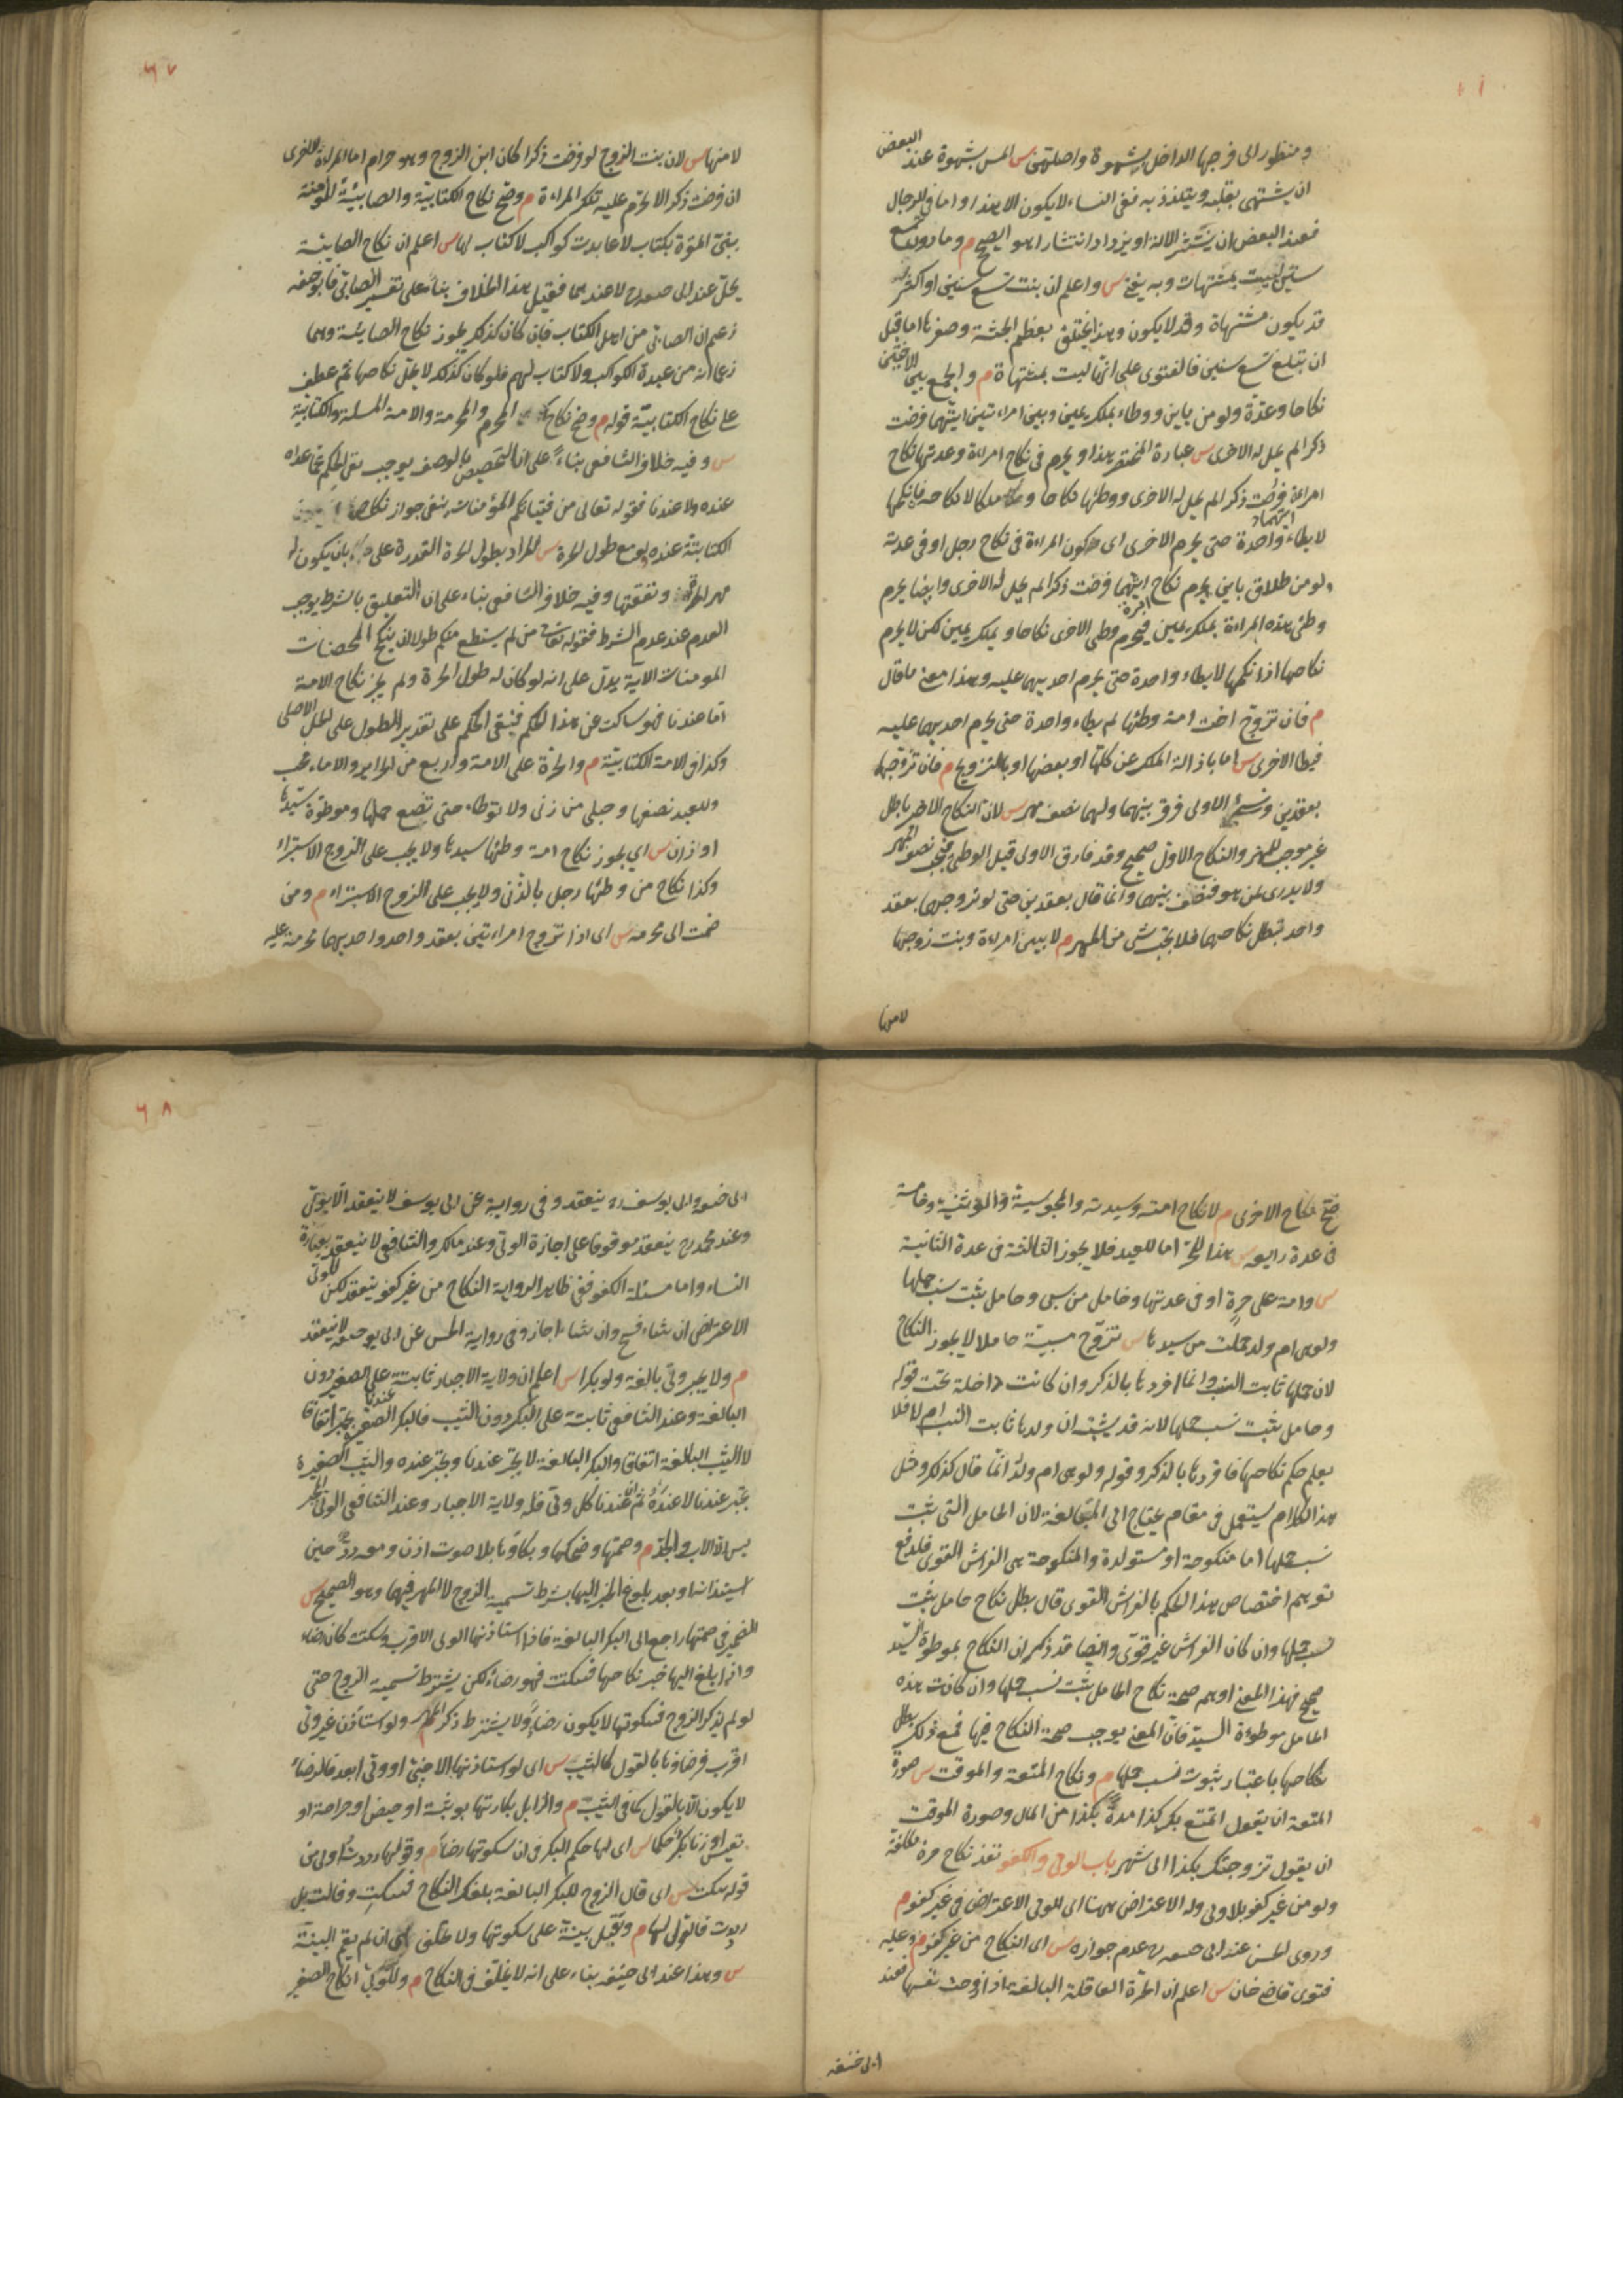 ومنظور الى فرجها الداخل بشهوة واصلهن س المس بشهوة عند البعض
ان يشتهى بقلبه ويتلذذ به ففى النساء لا يكون الا هذا واما فى الرجال
فعند البعض ان ينتشر الالة او يزداد انتشارا هو الصحيح م وما دون تسع
سنين ليست بمشتهاة وبه يفتى س واعلم ان بنت تسع سنين او اكثر
قد يكون مشتهاة وقد لا يكون وهذا يختلف بعظم الجثة وصغرها اما قبل
ان تبلغ تسع سنين فالفتوى على انها ليست بمشتهاة م والجمع بين الاختين
نكاحا وعدة ولو من باين ووطاء بملك يمين وبين امراءتين ايتهما فرضت
ذكرا لم يحل له الاخرى س عبارة المختصر هذا ويحرم فى نكاح امراءة وعدتها نكاح
امراءة فرضت ذكرا لم يحل له الاخرى ووطئها نكاحا وملكا لا نكاحه فان نكحها
لا يطاء واحدة حتى يحرم الاخرى اى كون المراءة فى نكاح رجل او فى عدته
ولو من طلاق باين يحرم نكاح ايتهما فرضت ذكرا لم يحل له الاخرى وايضا يحرم
وطئ هذه المراءة بملك يمين فيحرم وطئ الاخرى نكاحا وبملك يمين لكن لا يحرم
نكاحها اذا نكحها لا يطاء واحدة حتى يحرم احديهما عليه وهذا معنى ما قال
م فان تزوج اخت امة وطئها لم يطاء واحدة حتى يحرم احديهما عليه
فيطا الاخرى س اما بازالة الملك عن كلها او بعضها او بالتزويج م فان تزوجها
بعقدين ونسى الاولى فرق بينهما ولهما نصف مهر س لان النكاح الاخر باطل
غير موجب للمهر والنكاح الاول صحيح وقد فارق الاولى قبل الوطئ فيجب نصف المهر
ولا يدرى لمن هو فنصف بينهما وانما قال بعقدين حتى لو تزوجهما بعقد
واحد تبطل نكاحهما فلا يجب شى من المهر م لا بين امراءة وبنت زوجها
لا منها
٦٧
لا منها س لان بنت الزوج لو فرضت ذكرا كان ابن الزوج وهو حرام اما المراءة الاخرى
ان فرضت ذكرا لا تحرم عليه تلك المراءة م وصح نكاح الكتابية والصابئية المؤمنة
بنبى المقرة بكتاب لا عابدة كواكب لا كتاب لها س اعلم ان نكاح الصابئية
يحل عند ابى حنيفة لا عندهما فقيل هذا الخلاف بناء على تفسير الصابى فابو حنيفه
زعم ان الصابى من اهل الكتاب فان كان كذلك يجوز نكاح الصابئية وهما
زعما انه من عبدة الكواكب ولا كتاب لهم فلو كان كذلك لا يحل نكاحها ثم عطف
على نكاح الكتابية قوله م وصح نكاح المحرم والمحرمة والامة المسلمة والكتابية
س وفيه خلاف الشافعى بناء على ان التخصيص بالوصف يوجب نفى الحكم عما عداه
عنده ولا عندنا فقوله تعالى من فتياتكم المؤمنات ينفى جواز نكاح
الكتابية عنده ولو مع طول الحرة س المراد بطول الحرة القدرة على بان يكون له
مهر الحرة ونفقتها وفيه خلاف الشافعى بناء على ان التعليق بالشرط يوجب
العدم عند عدم الشرط فقوله تعالى من لم يستطع منكم طولا ان ينكح المحصنات
المومنات الاية يدل على انه لو كان له طول الحرة ولم يجز نكاح الامة
اما عندنا فهو ساكت عن هذا الحكم فيبقى الحكم على تقدير الطول على الحل الاصلى
وكذا فى الامة الكتابية م والحرة على الامة واربع من الحراير والاماء فحسب
وللعبد نصفها وحبلى من زنى ولا توطاء حتى تضع حملها وموطؤة سيدها
او زان س اى يجوز نكاح امة وطئها سيدها ولا يجب على الزوج الاستبراء
وكذا نكاح من وطئها رجل بالزنى ولا يجب على الزوج الاستبراء م ومن
ضمت الى محرمة س اى اذا تزوج امراءتين بعقد واحد واحديهما محرمة عليه
صح نكاح الاخرى م لا نكاح امته وسيدته والمجوسية والوثنية وخامسة
فى عدة رابعة س هذا للحر اما للعبد فلا يجوز الثالثة فى عدة الثانية
س وامة على حرة او فى عدتها وحامل من سبى وحامل يثبت نسب حملها
ولو هى ام ولد حملت من سيدها س تزوج مسبية حاملا لا يجوز النكاح
لان حملها ثابت النسب وانما افردها بالذكر وان كانت داخلة تحت قوله
وحامل يثبت نسب حملها لانه قد يشتبه ان ولدها ثابت النسب ام لا فلا
يعلم حكم نكاحها فافردها بالذكر وقوله ولو هى ام ولد انما قال كذلك ومثل
هذا الكلام يستعمل فى مقام يحتاج الى المبالغة لان الحامل التى يثبت
نسب حملها اما منكوحة او مستولدة والمنكوحة هى الفراش القوى فلدفع
توهم اختصاص هذا الحكم بالفراش القوى قال بطل نكاح حامل يثبت
نسب حملها وان كان الفراش غير قوى وايضا قد ذكر ان النكاح بموطوءة السيد
صحيح فهذا المعنى اوهم صحة نكاح الحامل يثبت نسب حملها وان كانت هذه
الحامل موطوءة السيد فان المعنى يوجب صحة النكاح فيها فمع ذلك بطل
نكاحها باعتبار ثبوت نسب حملها م ونكاح المتعة والموقت س صورة
المتعة ان يقول اتمتع بك كذا مدة بكذا من المال وصورة الموقت
ان يقول تزوجتك بكذا الى شهر باب الولى والكفو نفذ نكاح حرة مكلفة
ولو من غير كفو بلا ولى وله الاعتراض هنا اى للولى الاعتراض فى غير كفو م
وروى الحسن عند ابى حنيفة رح عدم جوازه س اى النكاح من غير كفو م وعليه
فتوى قاضى خان س اعلم ان الحرة العاقلة البالغة اذا زوجت نفسها فعند
ابى حنيفه
٦٨
ابى حنيفة وابى يوسف رح ينعقد وفى رواية عن ابى يوسف لا ينعقد الا بولى
وعند محمد رح ينعقد موقوفا على اجازة الولى وعند مالك والشافعى لا ينعقد بعبارة
النساء واما مسئلة الكفو ففى ظاهر الرواية النكاح من غير كفو ينعقد لكن للولى
الاعتراض ان شاء فسخ وان شاء اجاز وفى رواية الحسن عن ابى حنيفة لا ينعقد
م ولا يجبر ولى بالغة ولو بكرا س اعلم ان ولاية الاجبار ثابتة على الصغيرة دون
البالغة وعند الشافعى ثابتة على البكر دون الثيب فالبكر الصغيرة تجبر اتفاقا
لا الثيب البالغة اتفاقا والبكر البالغة لا تجبر عندنا وتجبر عنده والثيب الصغيرة
تجبر عندنا لا عنده ثم عندنا كل ولى فله ولاية الاجبار وعند الشافعى الولى المجبر
ليس الا الاب والجد م وصمتها وضحكها وبكاؤها بلا صوت اذن ومعه رد حين
استيذانه او بعد بلوغ الخبر اليها بشرط تسمية الزوج لا المهر فيهما وهو الصحيح س
الضمير فى صمتها راجع الى البكر البالغة فاذا استاذنها الولى الاقرب وسكتت كان رضاء
واذا بلغ اليها خبر نكاحها فسكتت فهو رضاء لكن يشترط تسمية الزوج حتى
لو لم يذكر الزوج فسكوتها لا يكون رضاء ولا يشترط ذكر المهر م ولو استاذن غير ولى
اقرب فرضاؤها بالقول كالثيب س اى لو استاذنها الاجنبى او ولى ابعد فالرضاء
لا يكون الا بالقول كما فى الثيب م والزايل بكارتها بوثبة او حيض او جراحة او
تعنيس او زنا بكر حكما س اى لها حكم البكر فى ان سكوتها رضاء م وقولها رددت اولى من
قوله سكت س اى قال الزوج للبكر البالغة بلغك النكاح فسكت وقالت بل
رددت فالقول لها م وتقبل بينته على سكوتها ولا تحلف هى ان لم يقم البينة
س وهذا عند ابى حنيفه بناء على انه لا يحلف فى النكاح م وللولى انكاح الصغير